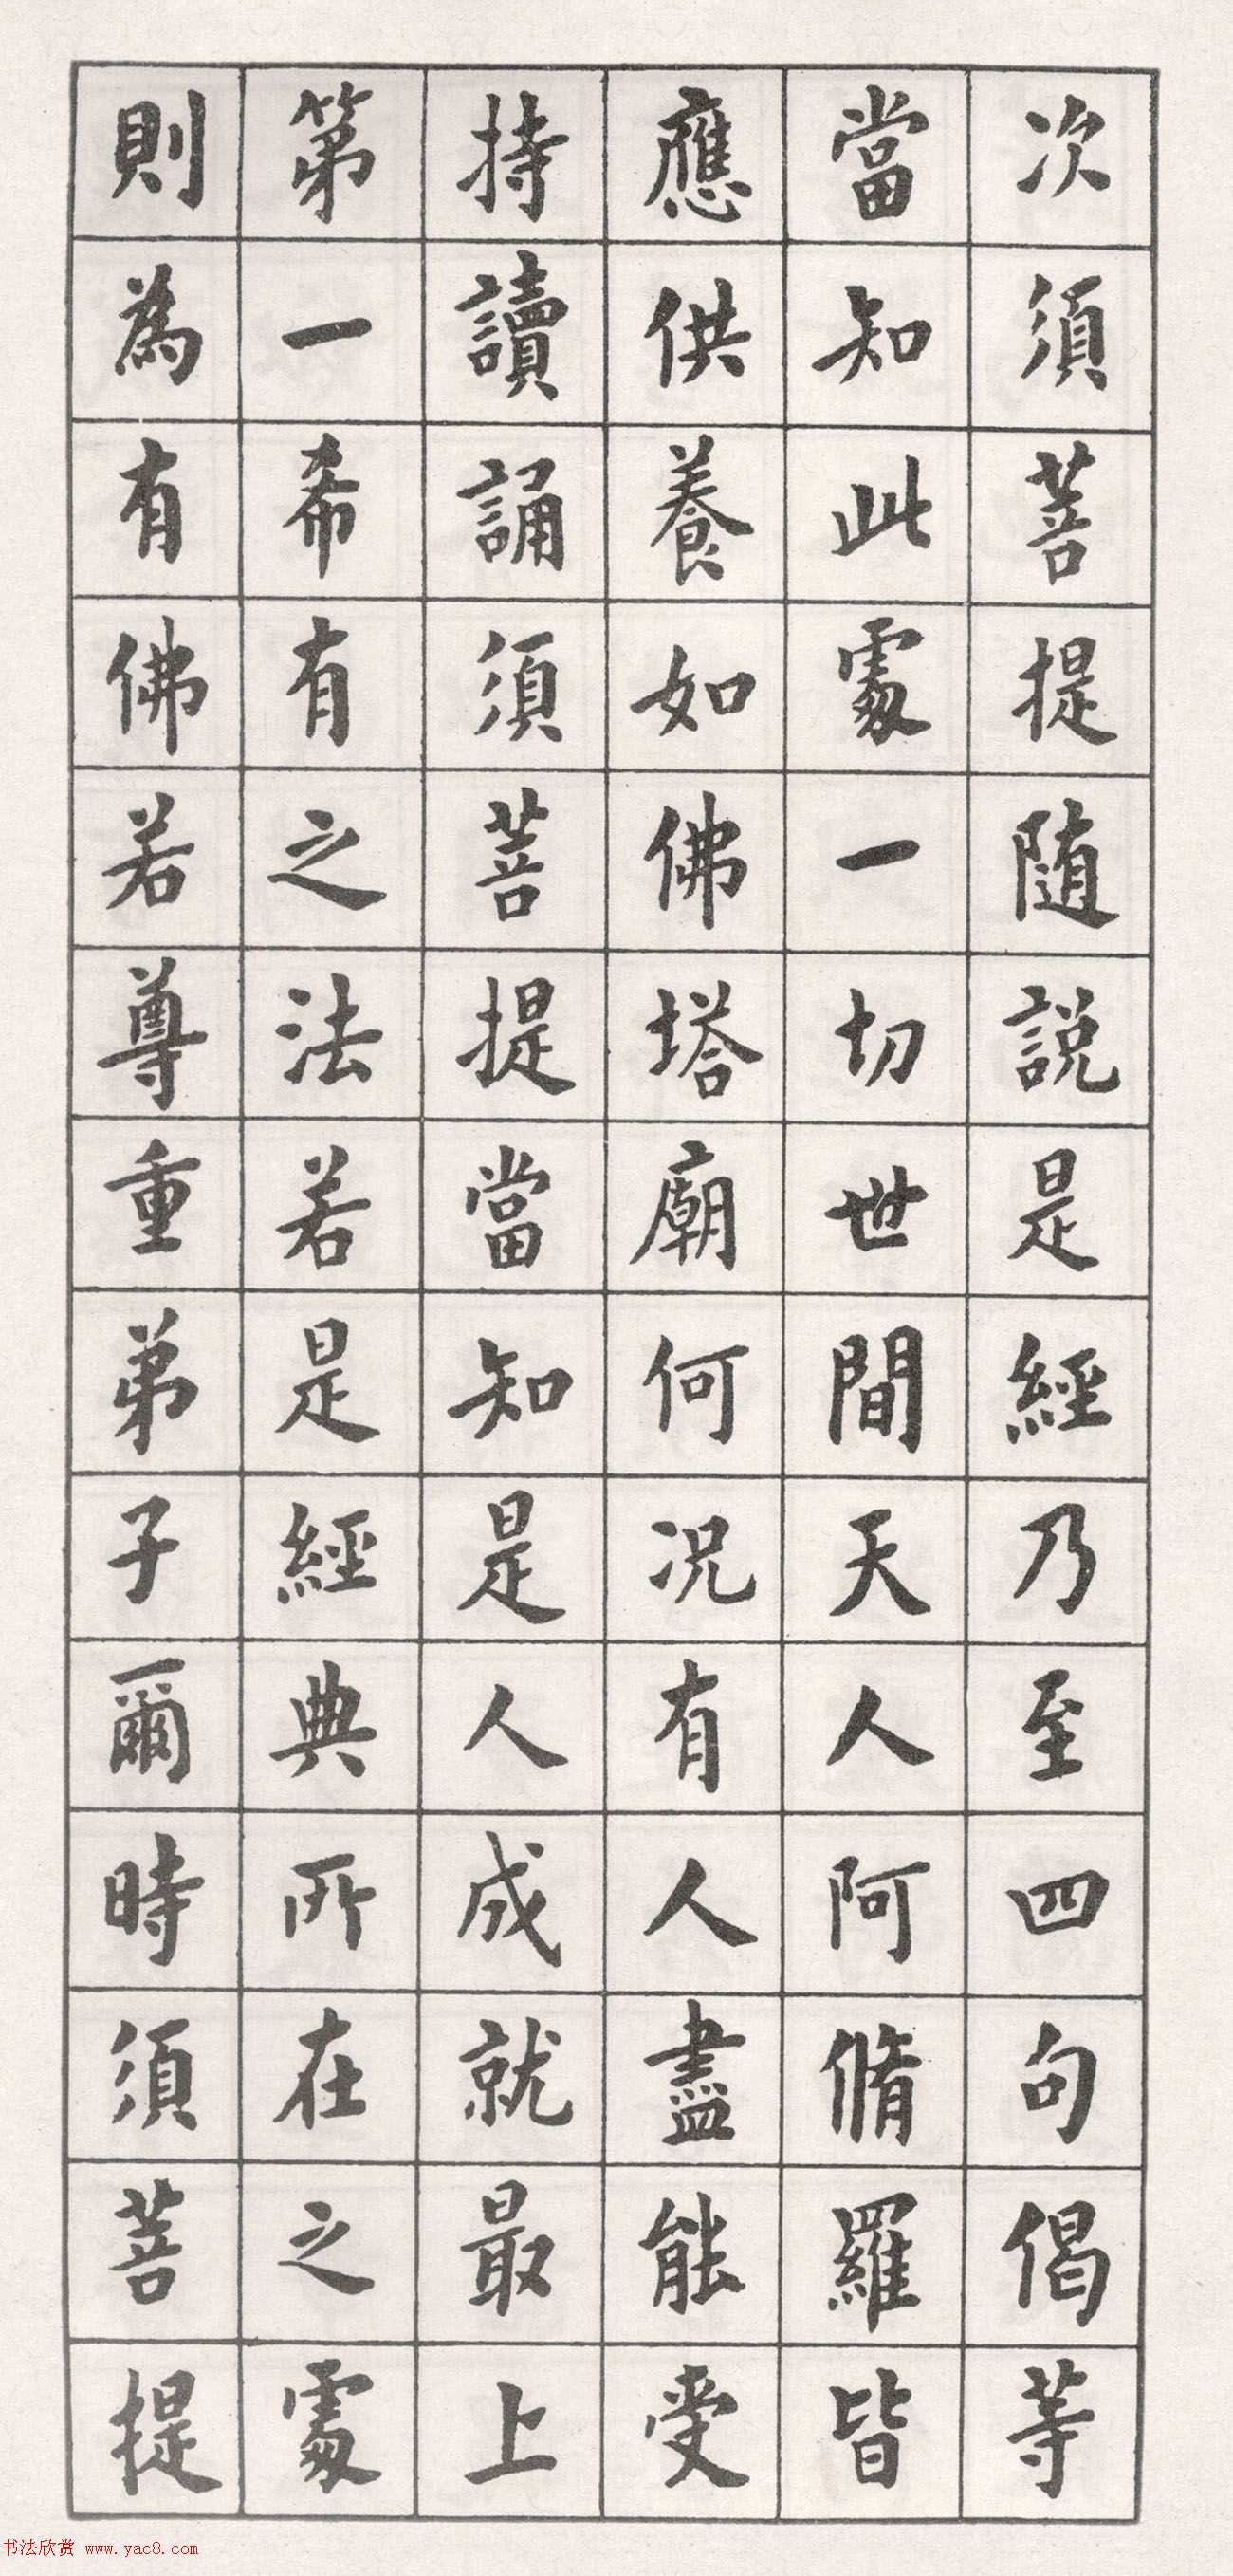 次須菩提随說是經乃至四句偈等
當知此處一切世間天人阿脩羅皆
應供養如佛塔廟何况有人盡能受
持讀誦須菩提當知是人成就最上
第一希有之法若是經典所在之處
則為有佛若尊重弟子爾時須菩提
书法欣赏 www.yac8.com